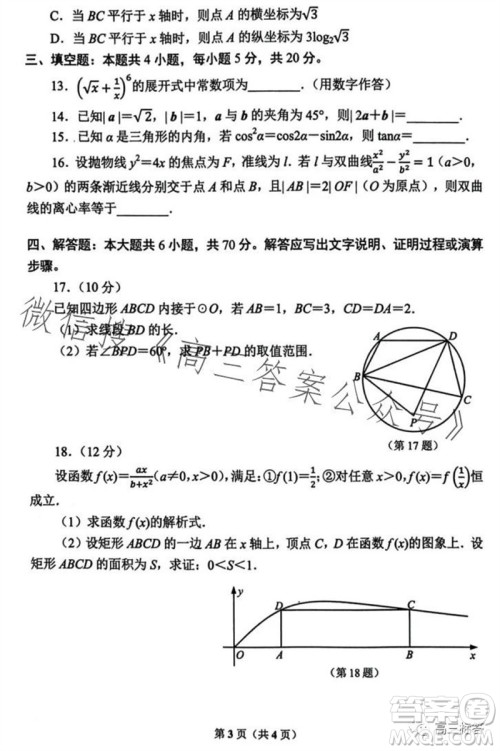 C. 当 BC 平行于 x 轴时，则点 A 的横坐标为√3
D. 当 BC 平行于 x 轴时，则点 A 的纵坐标为 3log₂√3
三、填空题：本题共 4 小题，每小题 5 分，共 20 分。
13. (√x+1/x)⁶的展开式中常数项为________.（用数字作答）
14. 已知|a|=√2，|b|=1，a 与 b 的夹角为 45°，则|2a+b|=________.
15. 已知 α 是三角形的内角，若 cos²α=cos2α−sin2α，则 tanα=________.
16. 设抛物线 y²=4x 的焦点为 F，准线为 l．若 l 与双曲线x²/a²−y²/b²=1（a>0，
b>0）的两条渐近线分别交于点 A 和点 B，且|AB|=2|OF|（O 为原点），则双曲
线的离心率等于________.
四、解答题：本大题共 6 小题，共 70 分。解答应写出文字说明、证明过程或演算
步骤。
17.（10 分）
已知四边形 ABCD 内接于⊙O，若 AB=1，BC=3，CD=DA=2.
（1）求线段 BD 的长.
（2）若∠BPD=60°，求 PB+PD 的取值范围.
A
D
B
C
P
（第 17 题）
18.（12 分）
设函数 f(x)=ax/(b+x²)（a≠0，x>0），满足：①f(1)=1/2；②对任意 x>0，f(x)=f(1/x)恒
成立.
（1）求函数 f(x)的解析式.
（2）设矩形 ABCD 的一边 AB 在 x 轴上，顶点 C，D 在函数 f(x)的图象上．设
矩形 ABCD 的面积为 S，求证：0<S<1.
y
D
C
O
A
B
x
（第 18 题）
第 3 页（共 4 页）
微信搜《高三答案公众号》
高三标答